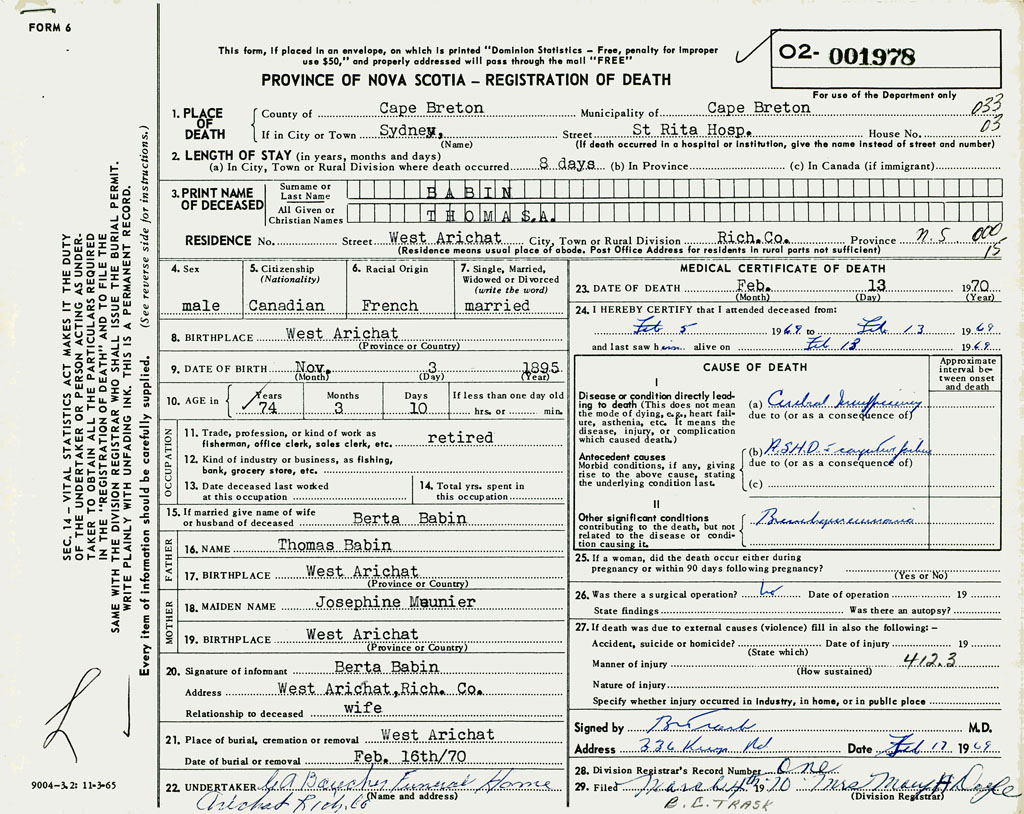 FORM 6
This form, if placed in an envelope, on which is printed "Dominion Statistics – Free, penalty for improper
use $50," and properly addressed will pass through the mail "FREE"
PROVINCE OF NOVA SCOTIA – REGISTRATION OF DEATH
O2- 001978
For use of the Department only
033
03
1. PLACE OF DEATH
County of Cape Breton Municipality of Cape Breton
If in City or Town Sydney, Street St Rita Hosp. House No.
(Name) (If death occurred in a hospital or institution, give the name instead of street and number)
2. LENGTH OF STAY (in years, months and days)
(a) In City, Town or Rural Division where death occurred 8 days (b) In Province (c) In Canada (if immigrant)
3. PRINT NAME OF DECEASED
Surname or Last Name BABIN
All Given or Christian Names THOMAS.A.
RESIDENCE No. Street West Arichat City, Town or Rural Division Rich.Co. Province N.S 000
15
(Residence means usual place of abode. Post Office Address for residents in rural parts not sufficient)
4. Sex
male
5. Citizenship
(Nationality)
Canadian
6. Racial Origin
French
7. Single, Married,
Widowed or Divorced
(write the word)
married
8. BIRTHPLACE West Arichat
(Province or Country)
9. DATE OF BIRTH Nov. 3 1895
(Month) (Day) (Year)
10. AGE in Years Months Days If less than one day old
74 3 10 hrs. or min.
OCCUPATION
11. Trade, profession, or kind of work as retired
fisherman, office clerk, sales clerk, etc.
12. Kind of industry or business, as fishing,
bank, grocery store, etc.
13. Date deceased last worked
at this occupation
14. Total yrs. spent in
this occupation
15. If married give name of wife
or husband of deceased Berta Babin
FATHER
16. NAME Thomas Babin
17. BIRTHPLACE West Arichat
(Province or Country)
MOTHER
18. MAIDEN NAME Josephine Maunier
19. BIRTHPLACE West Arichat
(Province or Country)
20. Signature of informant Berta Babin
Address West Arichat,Rich. Co.
Relationship to deceased wife
21. Place of burial, cremation or removal West Arichat
Date of burial or removal Feb. 16th/70
22. UNDERTAKER Funeral Home
Arichat Rich. Co
(Name and address)
MEDICAL CERTIFICATE OF DEATH
23. DATE OF DEATH Feb. 13 1970
(Month) (Day) (Year)
24. I HEREBY CERTIFY that I attended deceased from:
Feb 5 1969 to Feb 13 1969
and last saw him alive on Feb 13 1969
CAUSE OF DEATH
Approximate
interval be-
tween onset
and death
I
Disease or condition directly lead-
ing to death (This does not mean
the mode of dying, e.g., heart fail-
ure, asthenia, etc. It means the
disease, injury, or complication
which caused death.)
(a) Cerebral Insufficiency
due to (or as a consequence of)
Antecedent causes
Morbid conditions, if any, giving
rise to the above cause, stating
the underlying condition last.
(b) A.S.H.D.
due to (or as a consequence of)
(c)
II
Other significant conditions
contributing to the death, but not
related to the disease or condi-
tion causing it.
Bronchopneumonia
25. If a woman, did the death occur either during
pregnancy or within 90 days following pregnancy?
(Yes or No)
26. Was there a surgical operation? No Date of operation 19
State findings Was there an autopsy?
27. If death was due to external causes (violence) fill in also the following: –
Accident, suicide or homicide? Date of injury 19
(State which)
Manner of injury 412.3
(How sustained)
Nature of injury
Specify whether injury occurred in industry, in home, or in public place
Signed by B Trask M.D.
Address 336 Kings Rd Date Feb 17 1969
28. Division Registrar's Record Number One
29. Filed March 4th 1970 Mrs Mary H Doyle
(Division Registrar)
B. C. TRASK
SEC. 14 – VITAL STATISTICS ACT MAKES IT THE DUTY
OF THE UNDERTAKER OR PERSON ACTING AS UNDER-
TAKER TO OBTAIN ALL THE PARTICULARS REQUIRED
IN THE "REGISTRATION OF DEATH" AND TO FILE THE
SAME WITH THE DIVISION REGISTRAR WHO SHALL ISSUE THE BURIAL PERMIT.
WRITE PLAINLY WITH UNFADING INK. THIS IS A PERMANENT RECORD.
Every item of information should be carefully supplied. (See reverse side for instructions.)
9004–3.2: 11-3-65